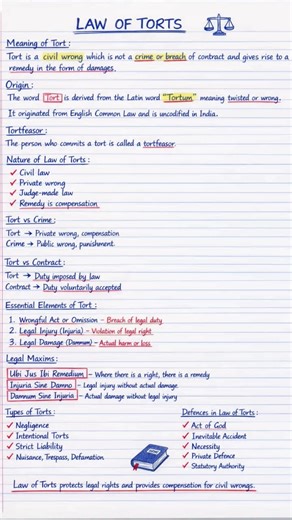 LAW OF TORTS
Meaning of Tort :
Tort is a civil wrong which is not a crime or breach of contract and gives rise to a
remedy in the form of damages.
Origin :
The word Tort is derived from the Latin word "Tortum" meaning twisted or wrong.
It originated from English Common Law and is uncodified in India.
Tortfeasor :
The person who commits a tort is called a tortfeasor.
Nature of Law of Torts :
✓ Civil law
✓ Private wrong
✓ Judge-made law
✓ Remedy is compensation
Tort vs Crime :
Tort → Private wrong, compensation
Crime → Public wrong, punishment.
Tort vs Contract :
Tort → Duty imposed by law
Contract → Duty voluntarily accepted
Essential Elements of Tort :
1. Wrongful Act or Omission – Breach of legal duty
2. Legal Injury (Injuria) – Violation of legal right
3. Legal Damage (Damnum) – Actual harm or loss
Legal Maxims :
Ubi Jus Ibi Remedium – Where there is a right, there is a remedy
Injuria Sine Damno – Legal injury without actual damage
Damnum Sine Injuria – Actual damage without legal injury
Types of Torts :
✓ Negligence
✓ Intentional Torts
✓ Strict Liability
✓ Nuisance, Trespass, Defamation
Defences in Law of Torts :
✓ Act of God
✓ Inevitable Accident
✓ Necessity
✓ Private Defence
✓ Statutory Authority
Law of Torts protects legal rights and provides compensation for civil wrongs.